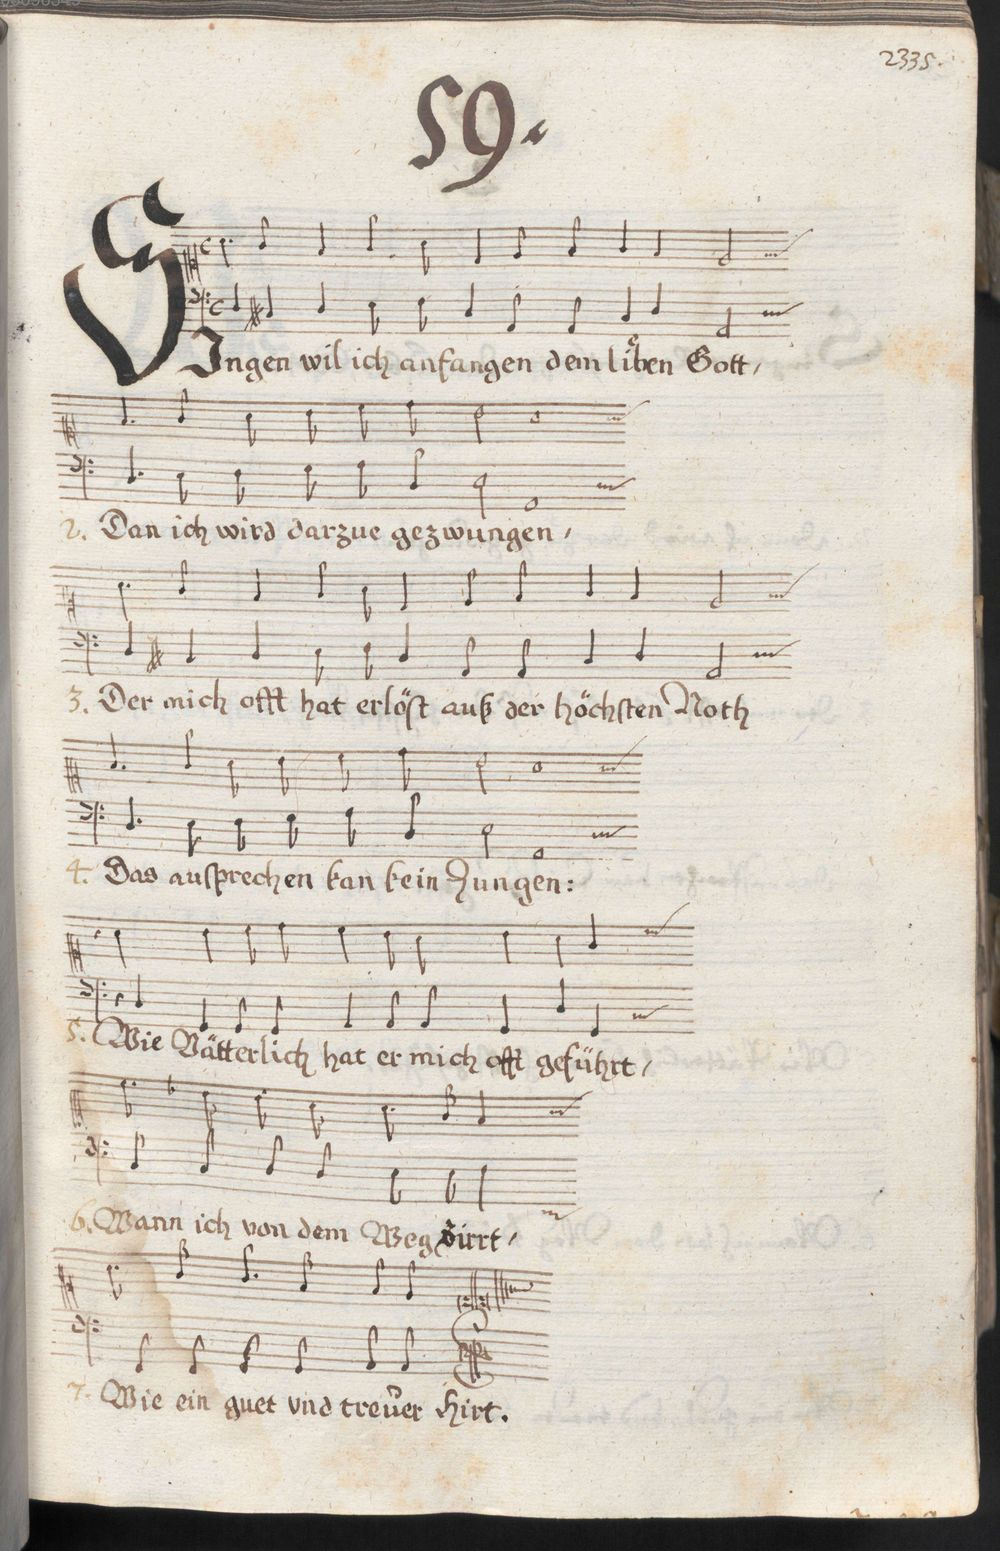 2335.
59.
SIngen wil ich anfangen dem liben Gott,
2. Dan ich wird darzue gezwungen,
3. Der mich offt hat erlöst auß der höchsten Noth
4. Das ausprechen kan kein Zungen:
5. Wie Vätterlich hat er mich offt geführt,
6. Wann ich von dem Weg
7. Wie ein guet vnd treuer Hirt.